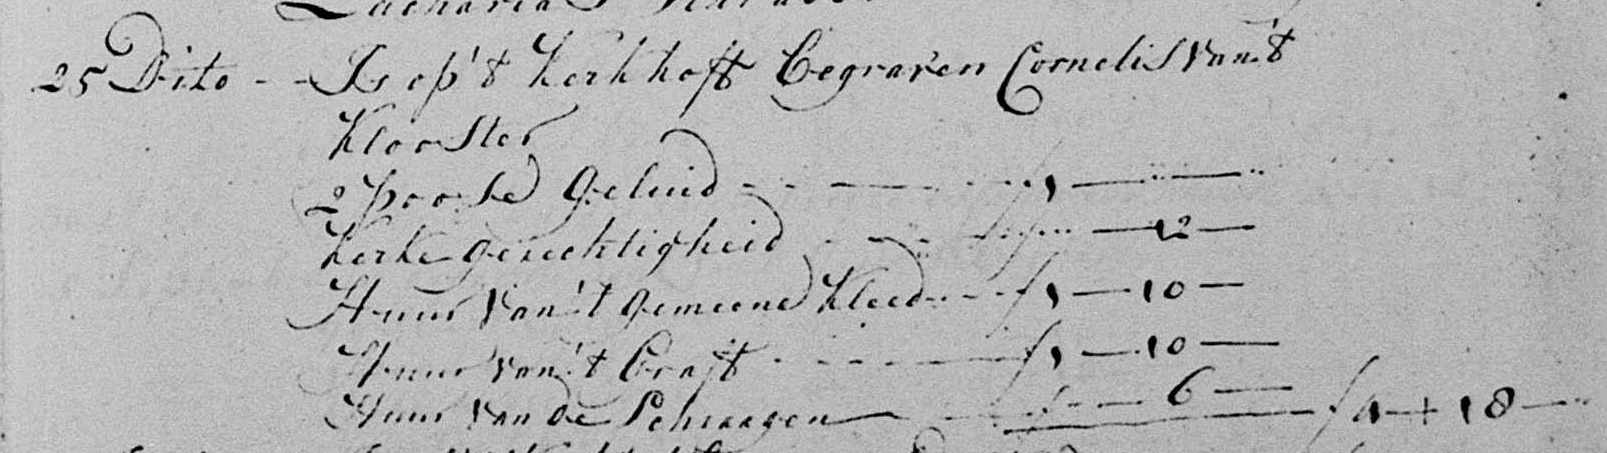 Zacharias
25 Dito - - Is op't kerkhoff Begraven Cornelis van't
Klooster
2 poose Geluid - - - - - f 1 — " —
Kerke gerechtigheid - - - - f " — 12 —
Huur van't gemeene Kleed - - - f 1 — 10 —
Huur van't Graft - - - - f 1 — 10 —
Huur van de Schraagen — - - f - — 6 — f 4 + 18 —